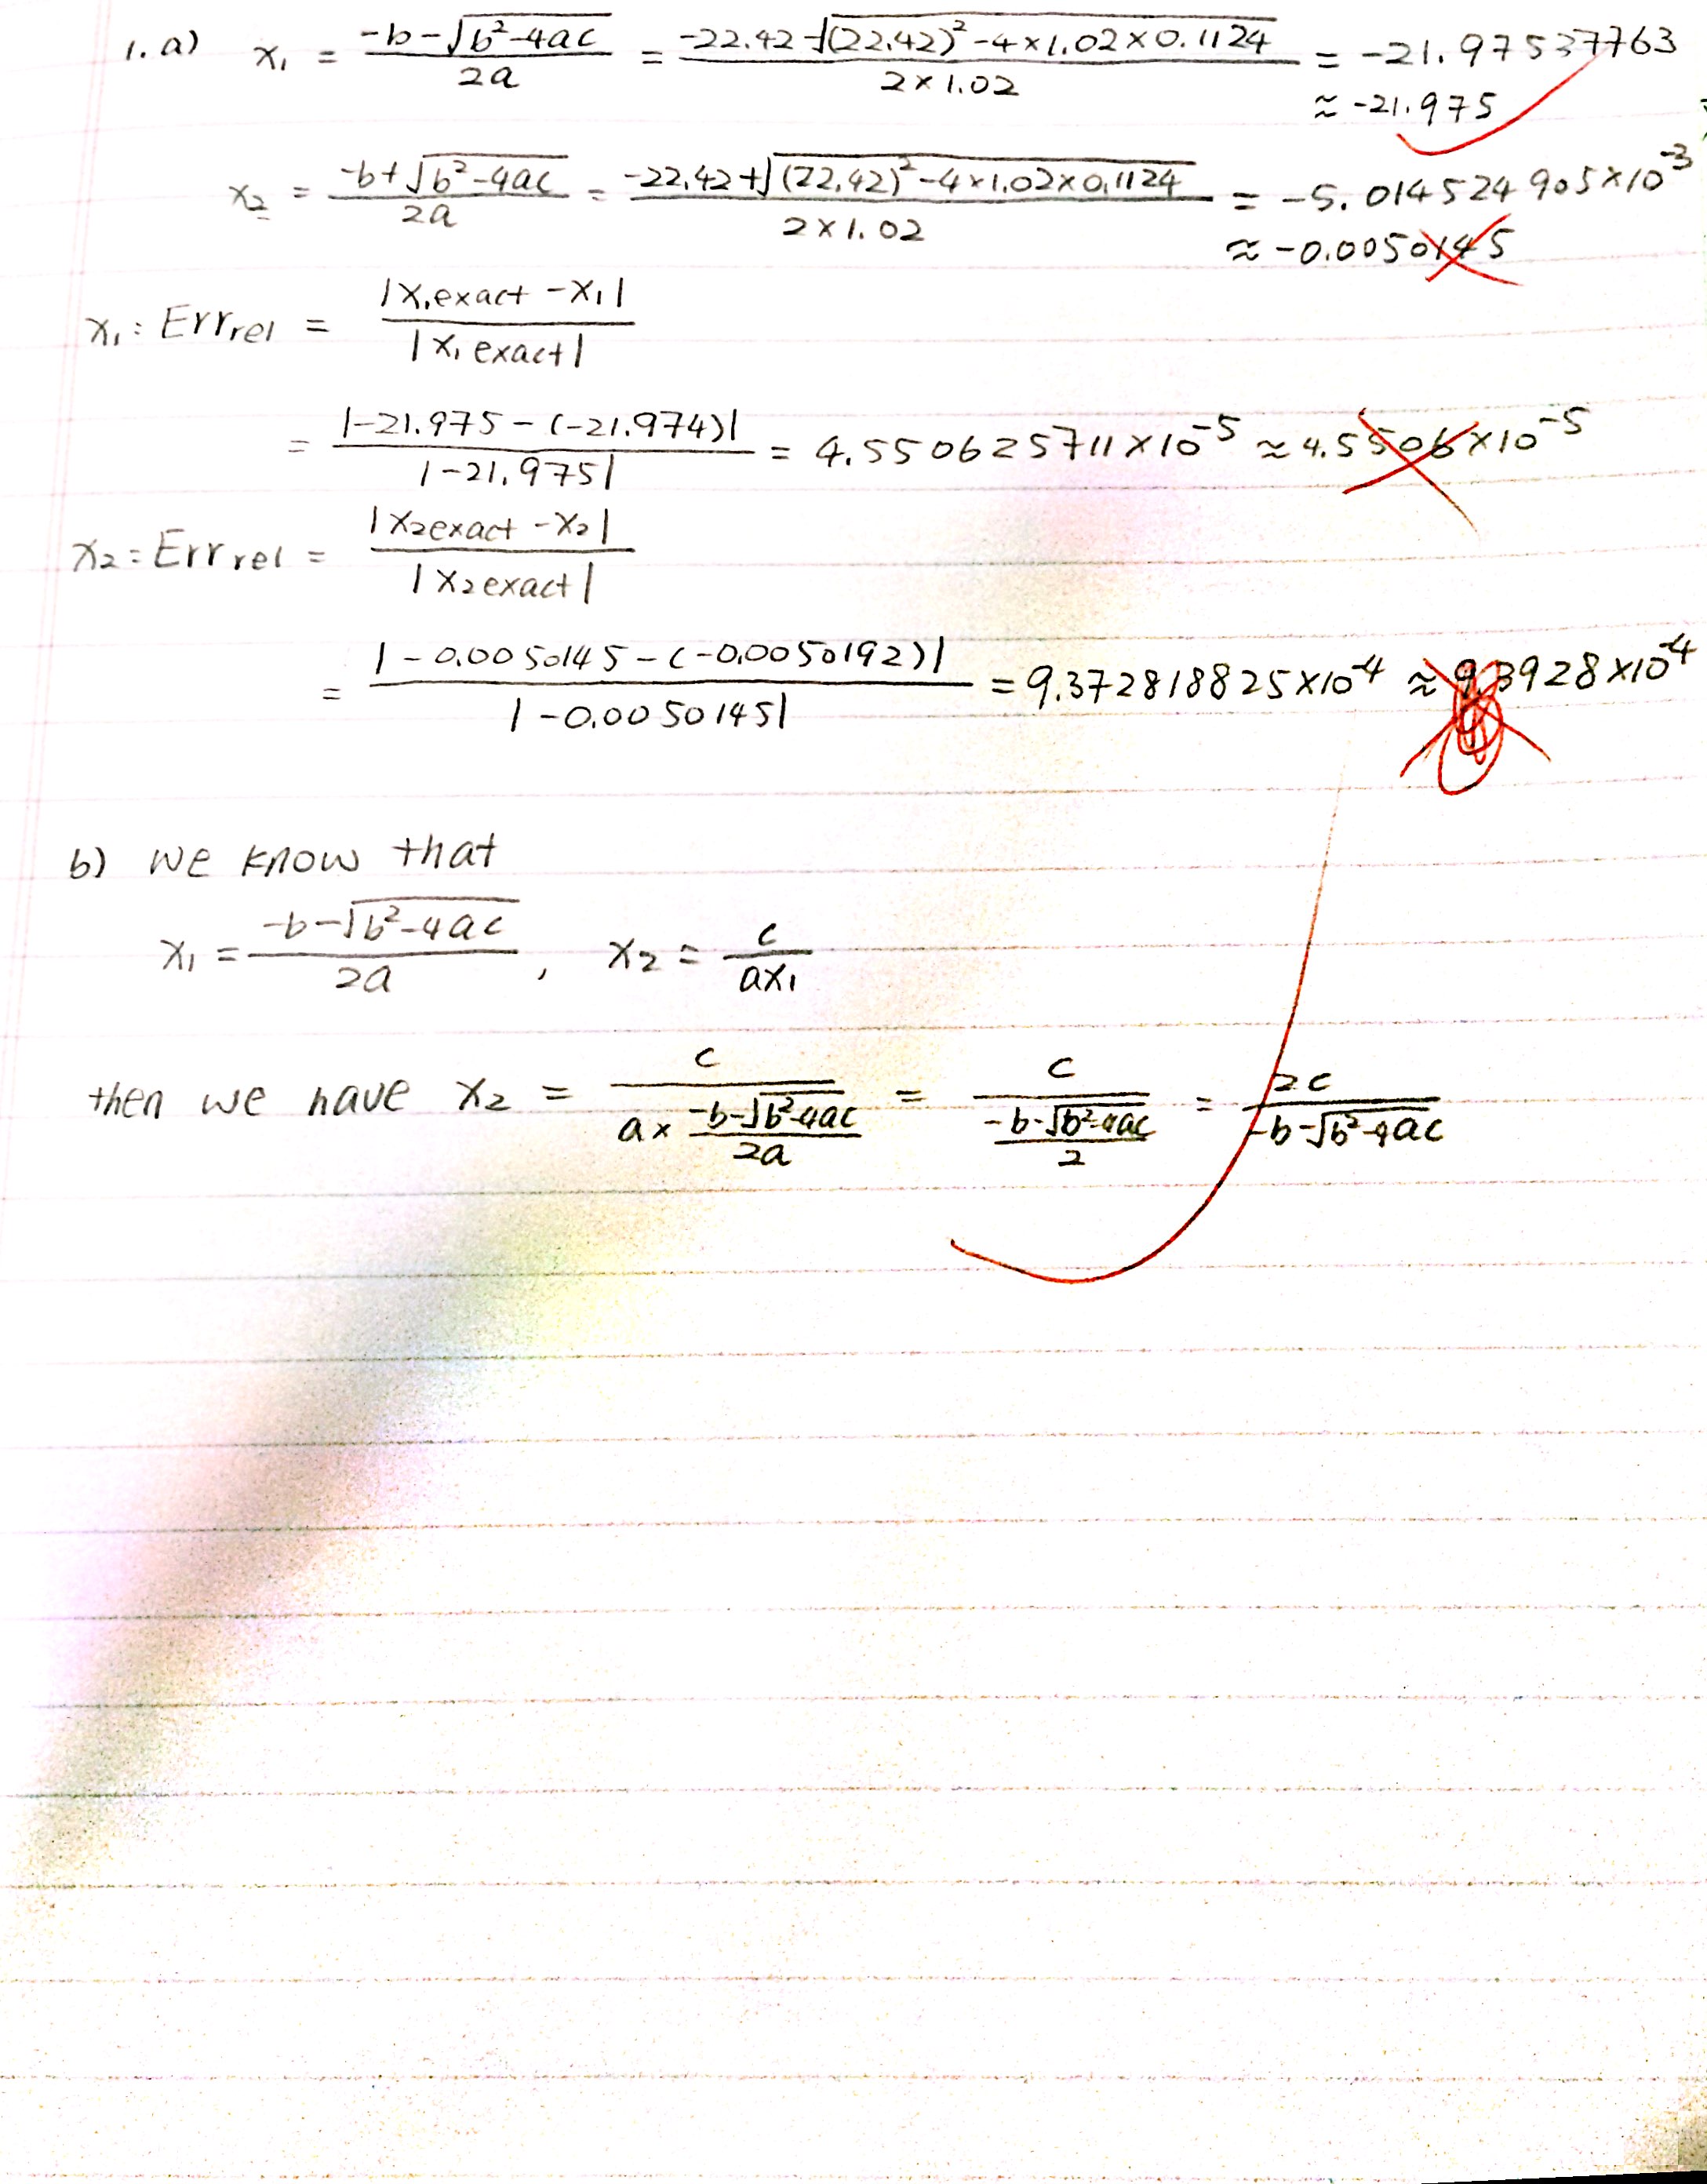 1. a) x₁ = (-b-√(b²-4ac))/(2a) = (-22.42-√((22.42)²-4×1.02×0.1124))/(2×1.02) = -21.97537763
≈ -21.975
x₂ = (-b+√(b²-4ac))/(2a) = (-22.42+√((22.42)²-4×1.02×0.1124))/(2×1.02) = -5.014524905×10⁻³
≈ -0.0050145
x₁: Err_rel = |x₁exact - x₁|/|x₁exact|
= |-21.975-(-21.974)|/|-21.975| = 4.550625711×10⁻⁵ ≈ 4.5506×10⁻⁵
x₂: Err_rel = |x₂exact - x₂|/|x₂exact|
= |-0.0050145-(-0.0050192)|/|-0.0050145| = 9.372818825×10⁻⁴ ≈ 9.3928×10⁻⁴
b) we know that
x₁ = (-b-√(b²-4ac))/(2a), x₂ = c/(ax₁)
then we have x₂ = c/(a×(-b-√(b²-4ac))/(2a)) = c/((-b-√(b²-4ac))/2) = 2c/(-b-√(b²-4ac))